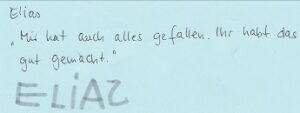 Elias
„Mir hat auch alles gefallen. Ihr habt das
gut gemacht."
ELIAS